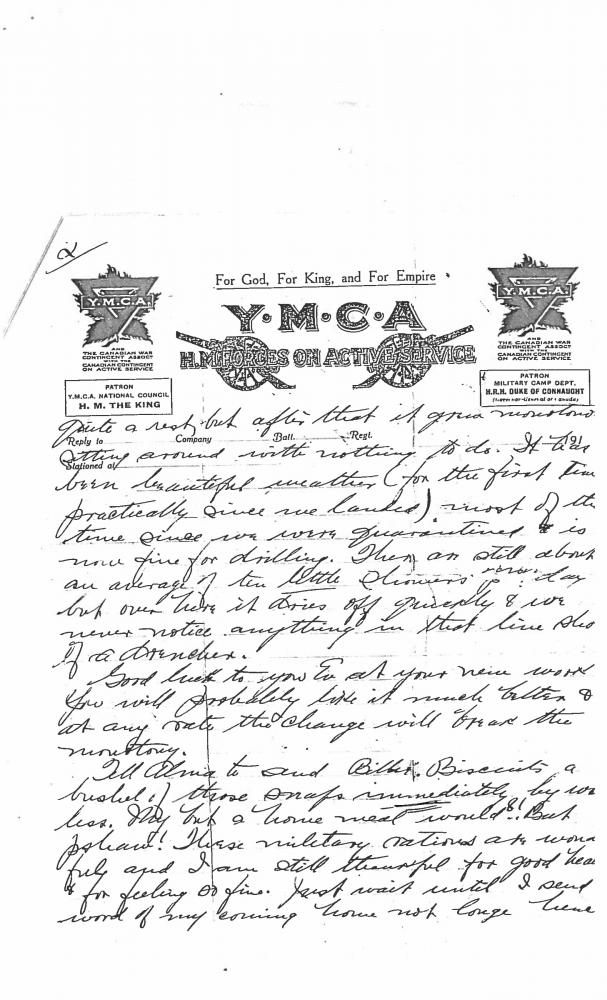 2
For God, For King, and For Empire
Y.M.C.A
Y·M·C·A
Y.M.C.A
H.M. FORCES ON ACTIVE SERVICE
AND
THE CANADIAN WAR
CONTINGENT ASSOCT
WITH THE
CANADIAN CONTINGENT
ON ACTIVE SERVICE
AND
THE CANADIAN WAR
CONTINGENT ASSOCT
WITH THE
CANADIAN CONTINGENT
ON ACTIVE SERVICE
PATRON
Y.M.C.A. NATIONAL COUNCIL
H. M. THE KING
PATRON
MILITARY CAMP DEPT.
H.R.H. DUKE OF CONNAUGHT
quite a rest, but after that it grew monotono
Reply to Company Batt. Regt.
sitting around with nothing to do. It has
Stationed at
been beautiful weather (for the first time
practically since we landed) most of the
time since we were quarantined & is
now fine for drilling. There are still about
an average of ten little showers per day
but over here it dries off quickly & we
never notice anything in that line sho
of a drencher.
Good luck to you Ev at your new work
You will probably like it much better &
at any rate the change will break the
monotony.
Tell Alma to send Biscuits a
bushel of those snaps immediately by
less. My but a home meal would! But
pshaw! These military rations are won
fully and I am still thankful for good hea
& for feeling so fine. Just wait until I send
word of my coming home not longe hence